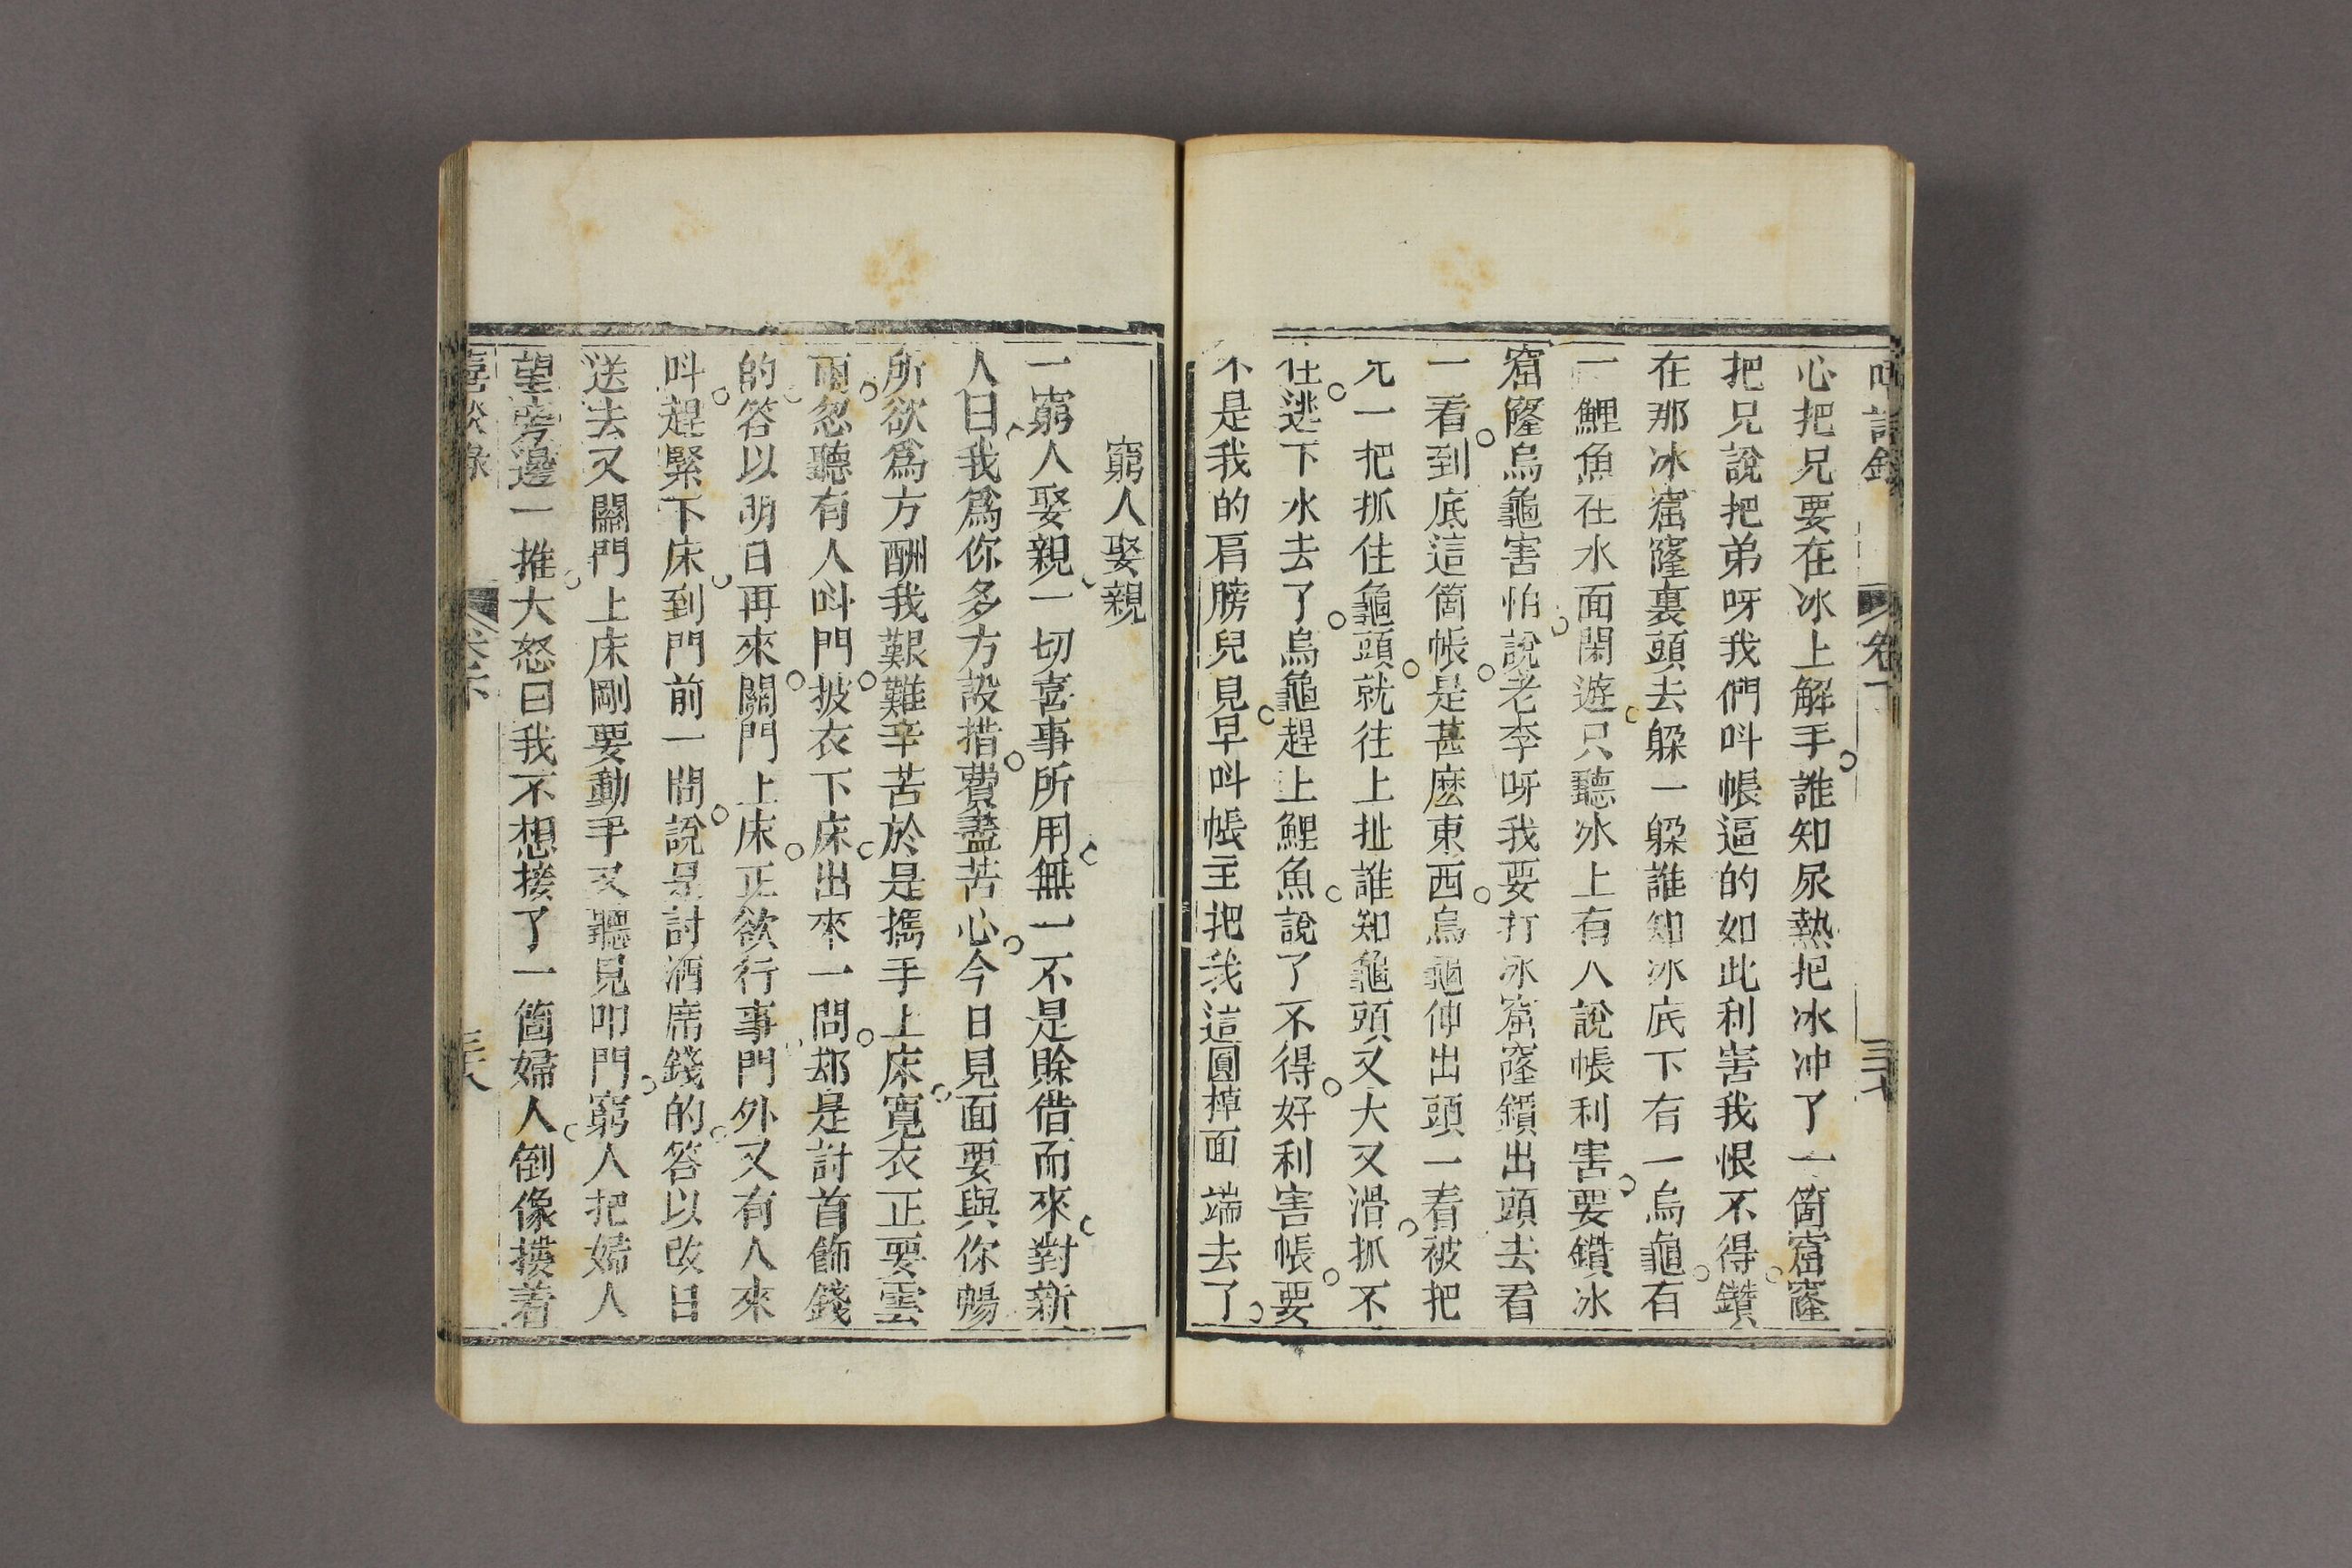 心把兄要在冰上解手誰知尿熱把冰冲了一箇窟窿
把兄說把弟呀我們呌帳逼的如此利害我恨不得鑽
在那冰窟窿裏頭去躱一躱誰知冰底下有一烏龜有
一鯉魚在水面閑遊只聽氷上有人說帳利害要鑽冰
窟窿烏龜害怕說老李呀我要打冰窟窿鑽出頭去看
一看到底這箇帳是甚麽東西烏龜伸出頭一看被把
兄一把抓住龜頭就往上扯誰知龜頭又大又滑抓不
住逃下水去了烏龜趕上鯉魚說了不得好利害帳要
不是我的肩膀兒見早呌帳主把我這圓棹面端去了
窮人娶親
一窮人娶親一切喜事所用無一不是賒借而來對新
人曰我爲你多方設措費盡苦心今日見面要與你暢
所欲爲方酬我艱難辛苦於是擕手上床寬衣正要雲
雨忽聽有人呌門披衣下床出來一問却是討首飾錢
的答以明日再來關門上床正欲行事門外又有人來
呌趕緊下床到門前一問說是討酒席錢的答以改日
送去又關門上床剛要動手又聽見叩門窮人把婦人
望旁邊一推大怒曰我不想接了一箇婦人倒像摟着
喜談錄 卷下 三十八